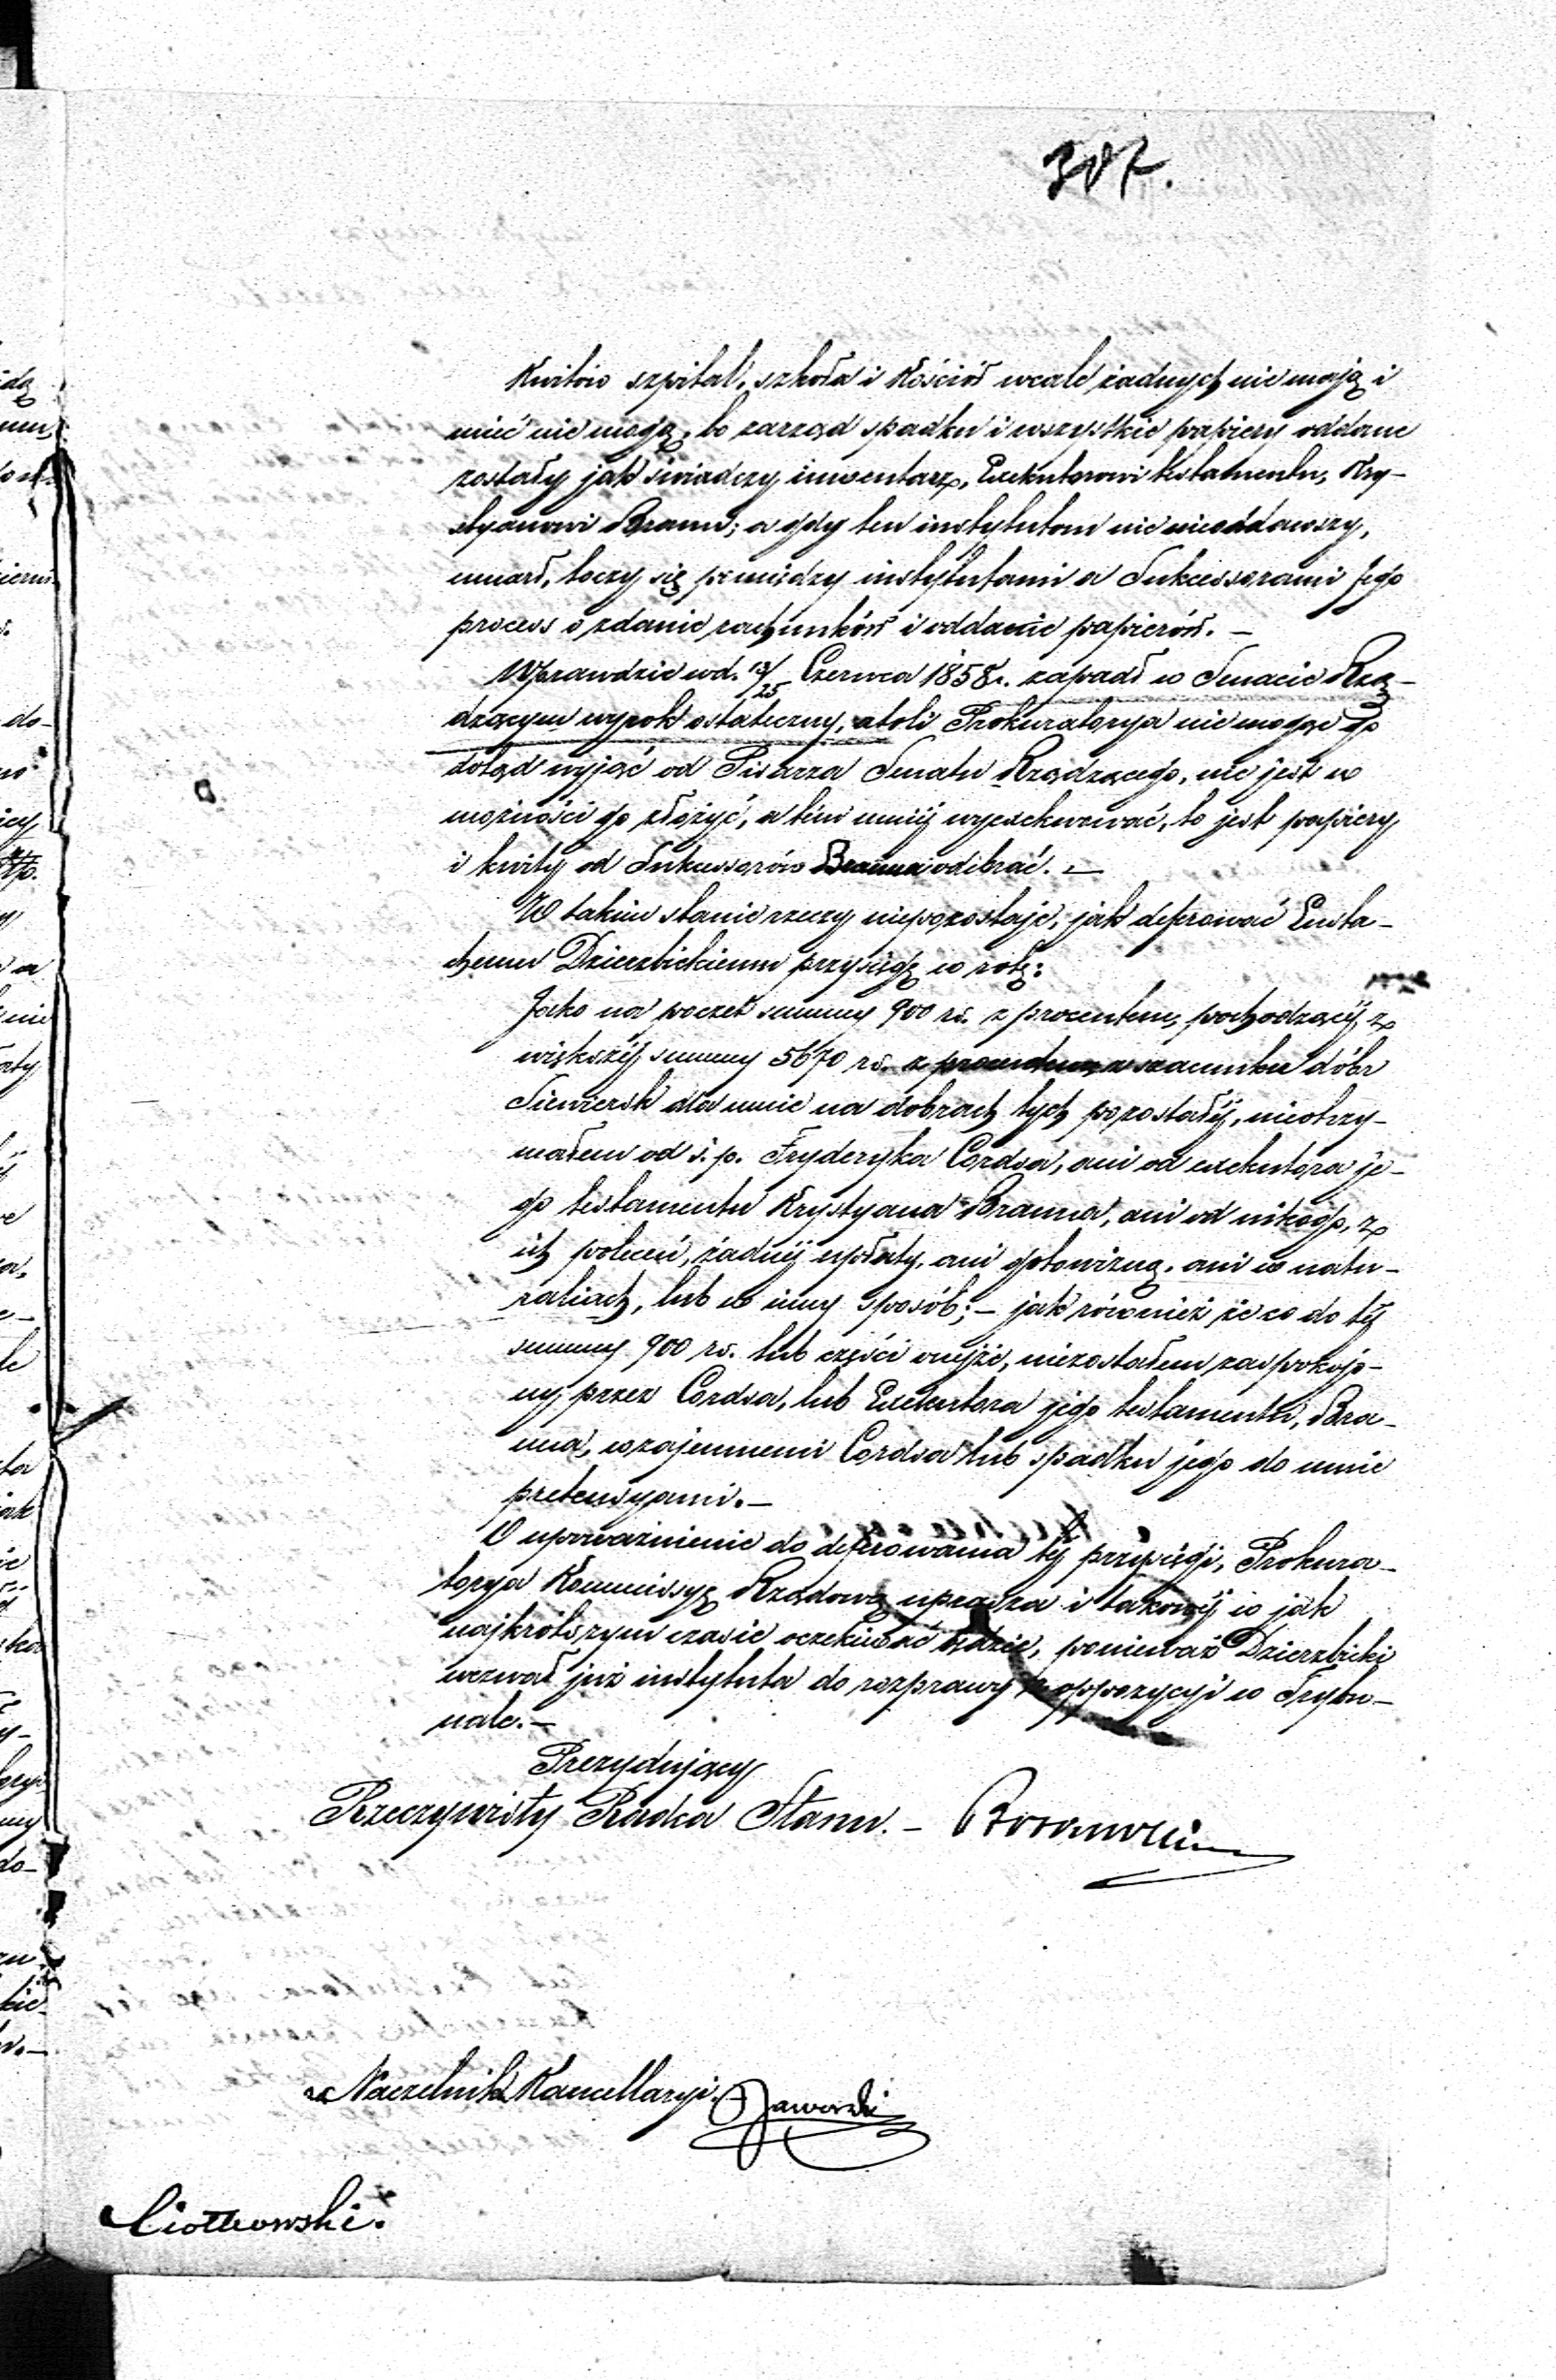 307.
Kwitów szpital, szkoła i Kościół wcale żadnych nie mają i
mieć nie mogą, bo zarząd spadku i wszystkie papiery oddane
zostały jak świadczy inwentarz, Exekutorowi testamentu, Kry-
styanowi Braun; a gdy ten instytutom nic nieoddawszy,
umarł, toczy się pomiędzy instytutami a Sukcessorami Jego
proces o zdanie rachunków i oddanie papierów. —
Wprawdzie w d. 13/25 Czerwca 1858 r. zapadł w Senacie Rzą-
dzącym wyrok ostateczny, atoli Prokuratorya nie mogąc go
dotąd wyjąć od Pisarza Senatu Rządzącego, nie jest w
możności go złożyć, a tém mniéj wyexekwować, to jest papiery
i kwity od Sukcessorów Brauna odebrać. —
W takim stanie rzeczy niepozostaje, jak deferować Eusta-
chemu Dzierzbickiemu przysięgę w rotę:
Jako na poczet summy 900 rs. z procentem, pochodzącéj z
większéj summy 5670 rs. z procentem z szacunku dóbr
Siemiersk dla mnie na dobrach tych pozostałéj, nieotrzy-
małem od ś. p. Fryderyka Cordsa, ani od exekutora je-
go testamentu Krystyana Brauna, ani od nikogo, z
ich poleceń, żadnéj upłaty, ani gotowizną, ani w natu-
raliach, lub w inny sposób; — jak również że co do téj
summy 900 rs. lub części onéjże, niezostałem zaspokojo-
ny, przez Cordsa, lub Exekutora jego testamentu, Bra-
una, wzajemnemi Cordsa lub spadku jego do mnie
pretensyami. —
O upoważnienie do deferowania téj przysięgi, Prokura-
torya Kommissyę Rządową uprasza i takowéj w jak
najkrótszym czasie oczekiwać będzie, ponieważ Dzierzbicki
wezwał już instytuta do rozprawy z oppozycyi w Trybu-
nale. —
Prezydujący
Rzeczywisty Radca Stanu. —
Naczelnik Kancellaryi. Jaworski
Ciotkowski.